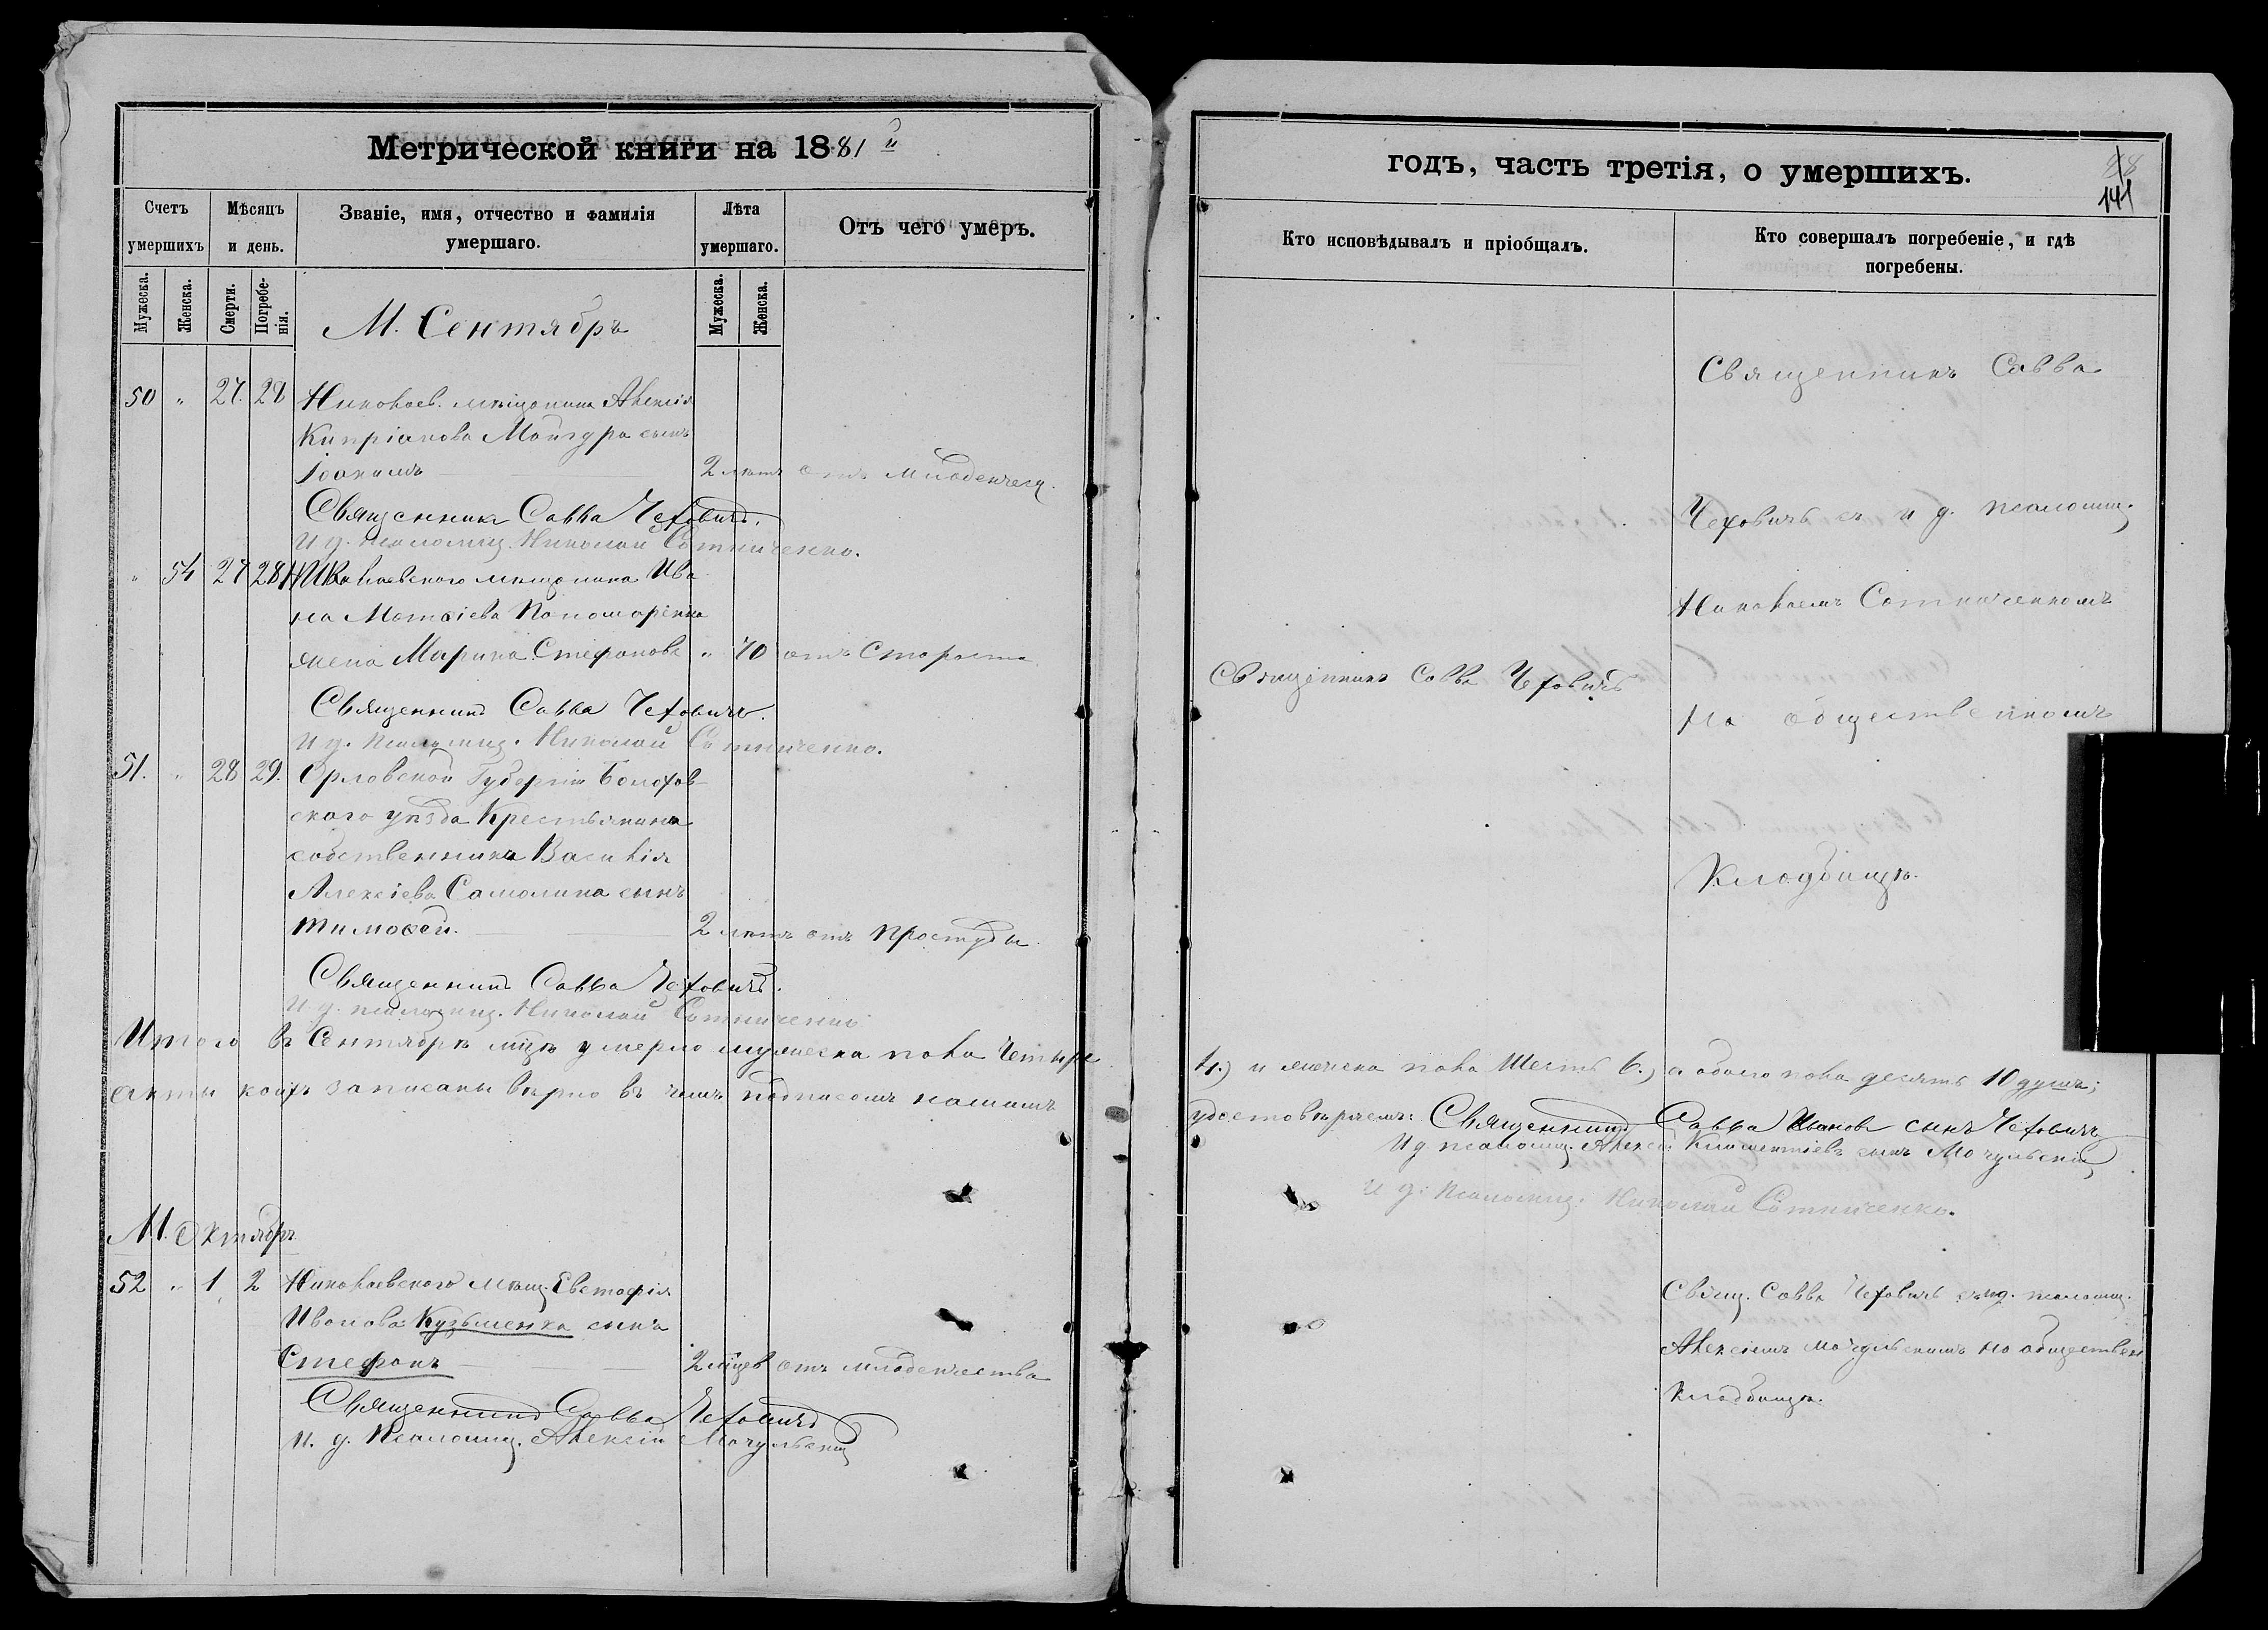 Метрической книги на 1881й
Счетъ умершихъ
Мѣсяцъ и день.
Званіе, имя, отчество и фамилія умершаго.
Лѣта умершаго.
Отъ чего умеръ.
Мужеска.
Женска.
Смерти.
Погребенія.
Мужеска.
Женска.
М. Сентябрь
50 " 27. 28 Николаев. мѣщанина Алексія
Кипріанова сынъ
Іоакимъ 2 лѣтъ отъ младенчест.
Священникъ Савва Чеховичъ.
И д. псаломщ. Николай Сотниченко.
" 54 27 28 Николаевского мещанина Ива
на Матѳіева Пономаренка
жена Марина Стефанова " 70 отъ Старости
Священникъ Савва Чеховичъ.
И д. псаломщ. Николай Сотниченко.
51. " 28 29. Орловской Губерніи Болохов-
ского уѣзда Крестьянина
собственника Василія
Алексіева Самолина сынъ
Тимоѳей. 2 лѣтъ отъ простуды.
Священникъ Савва Чеховичъ.
И д. псаломщ. Николай Сотниченко
Итого въ Сентябрѣ мцѣ умерло мужеска пола Четыре
акты коихъ записаны вѣрно въ чемъ подписомъ нашимъ
М. Октябрь
52 " 1 2 Николаевского мѣщ. Евстафія
Иванова Кузьменка сынъ
Стефанъ 2 мцев отъ младенчества
Священникъ Савва Чеховичъ
И. д. Псаломщ. Алексій Мочульскій
годъ, часть третія, о умершихъ.
141
Кто исповѣдывалъ и пріобщалъ.
Кто совершалъ погребеніе, и гдѣ погребены.
Священникъ Савва
Чеховичъ съ и д. псаломщ.
Николаемъ Сотниченкомъ
Священникъ Савва Чеховичъ
На общественномъ
Кладбищѣ.
4.) и женска пола Шесть 6.) а обоего пола десять 10 душъ;
удостовѣряемъ: Священникъ Савва Иванов сынъ Чеховичъ
И д псаломщ. Алексій Климентіевъ сынъ Мочульскій
И д. Псаломщ. Николай Сотниченко.
Свящ. Савва Чеховичъ съ ид. псаломщ.
Алексіемъ Мочульскимъ на обществен
Кладбищѣ.